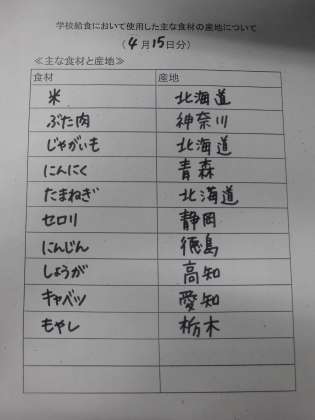 学校給食において使用した主な食材の産地について
(4月15日分)
≪主な食材と産地≫
食材 産地
米 北海道
ぶた肉 神奈川
じゃがいも 北海道
にんにく 青森
たまねぎ 北海道
セロリ 静岡
にんじん 徳島
しょうが 高知
キャベツ 愛知
もやし 栃木